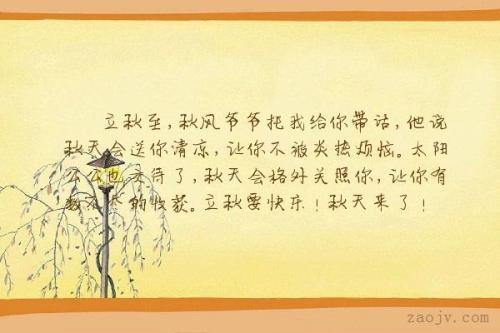 立秋至,秋风爷爷托我给你带话,他说
秋天会送你清凉,让你不被炎热烦恼。太阳
公公也交待了,秋天会格外关照你,让你有
数不尽的收获。立秋要快乐!秋天来了!
zaojv.com